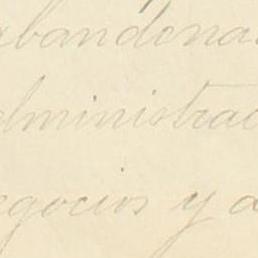 abandona
administrac
negocios y